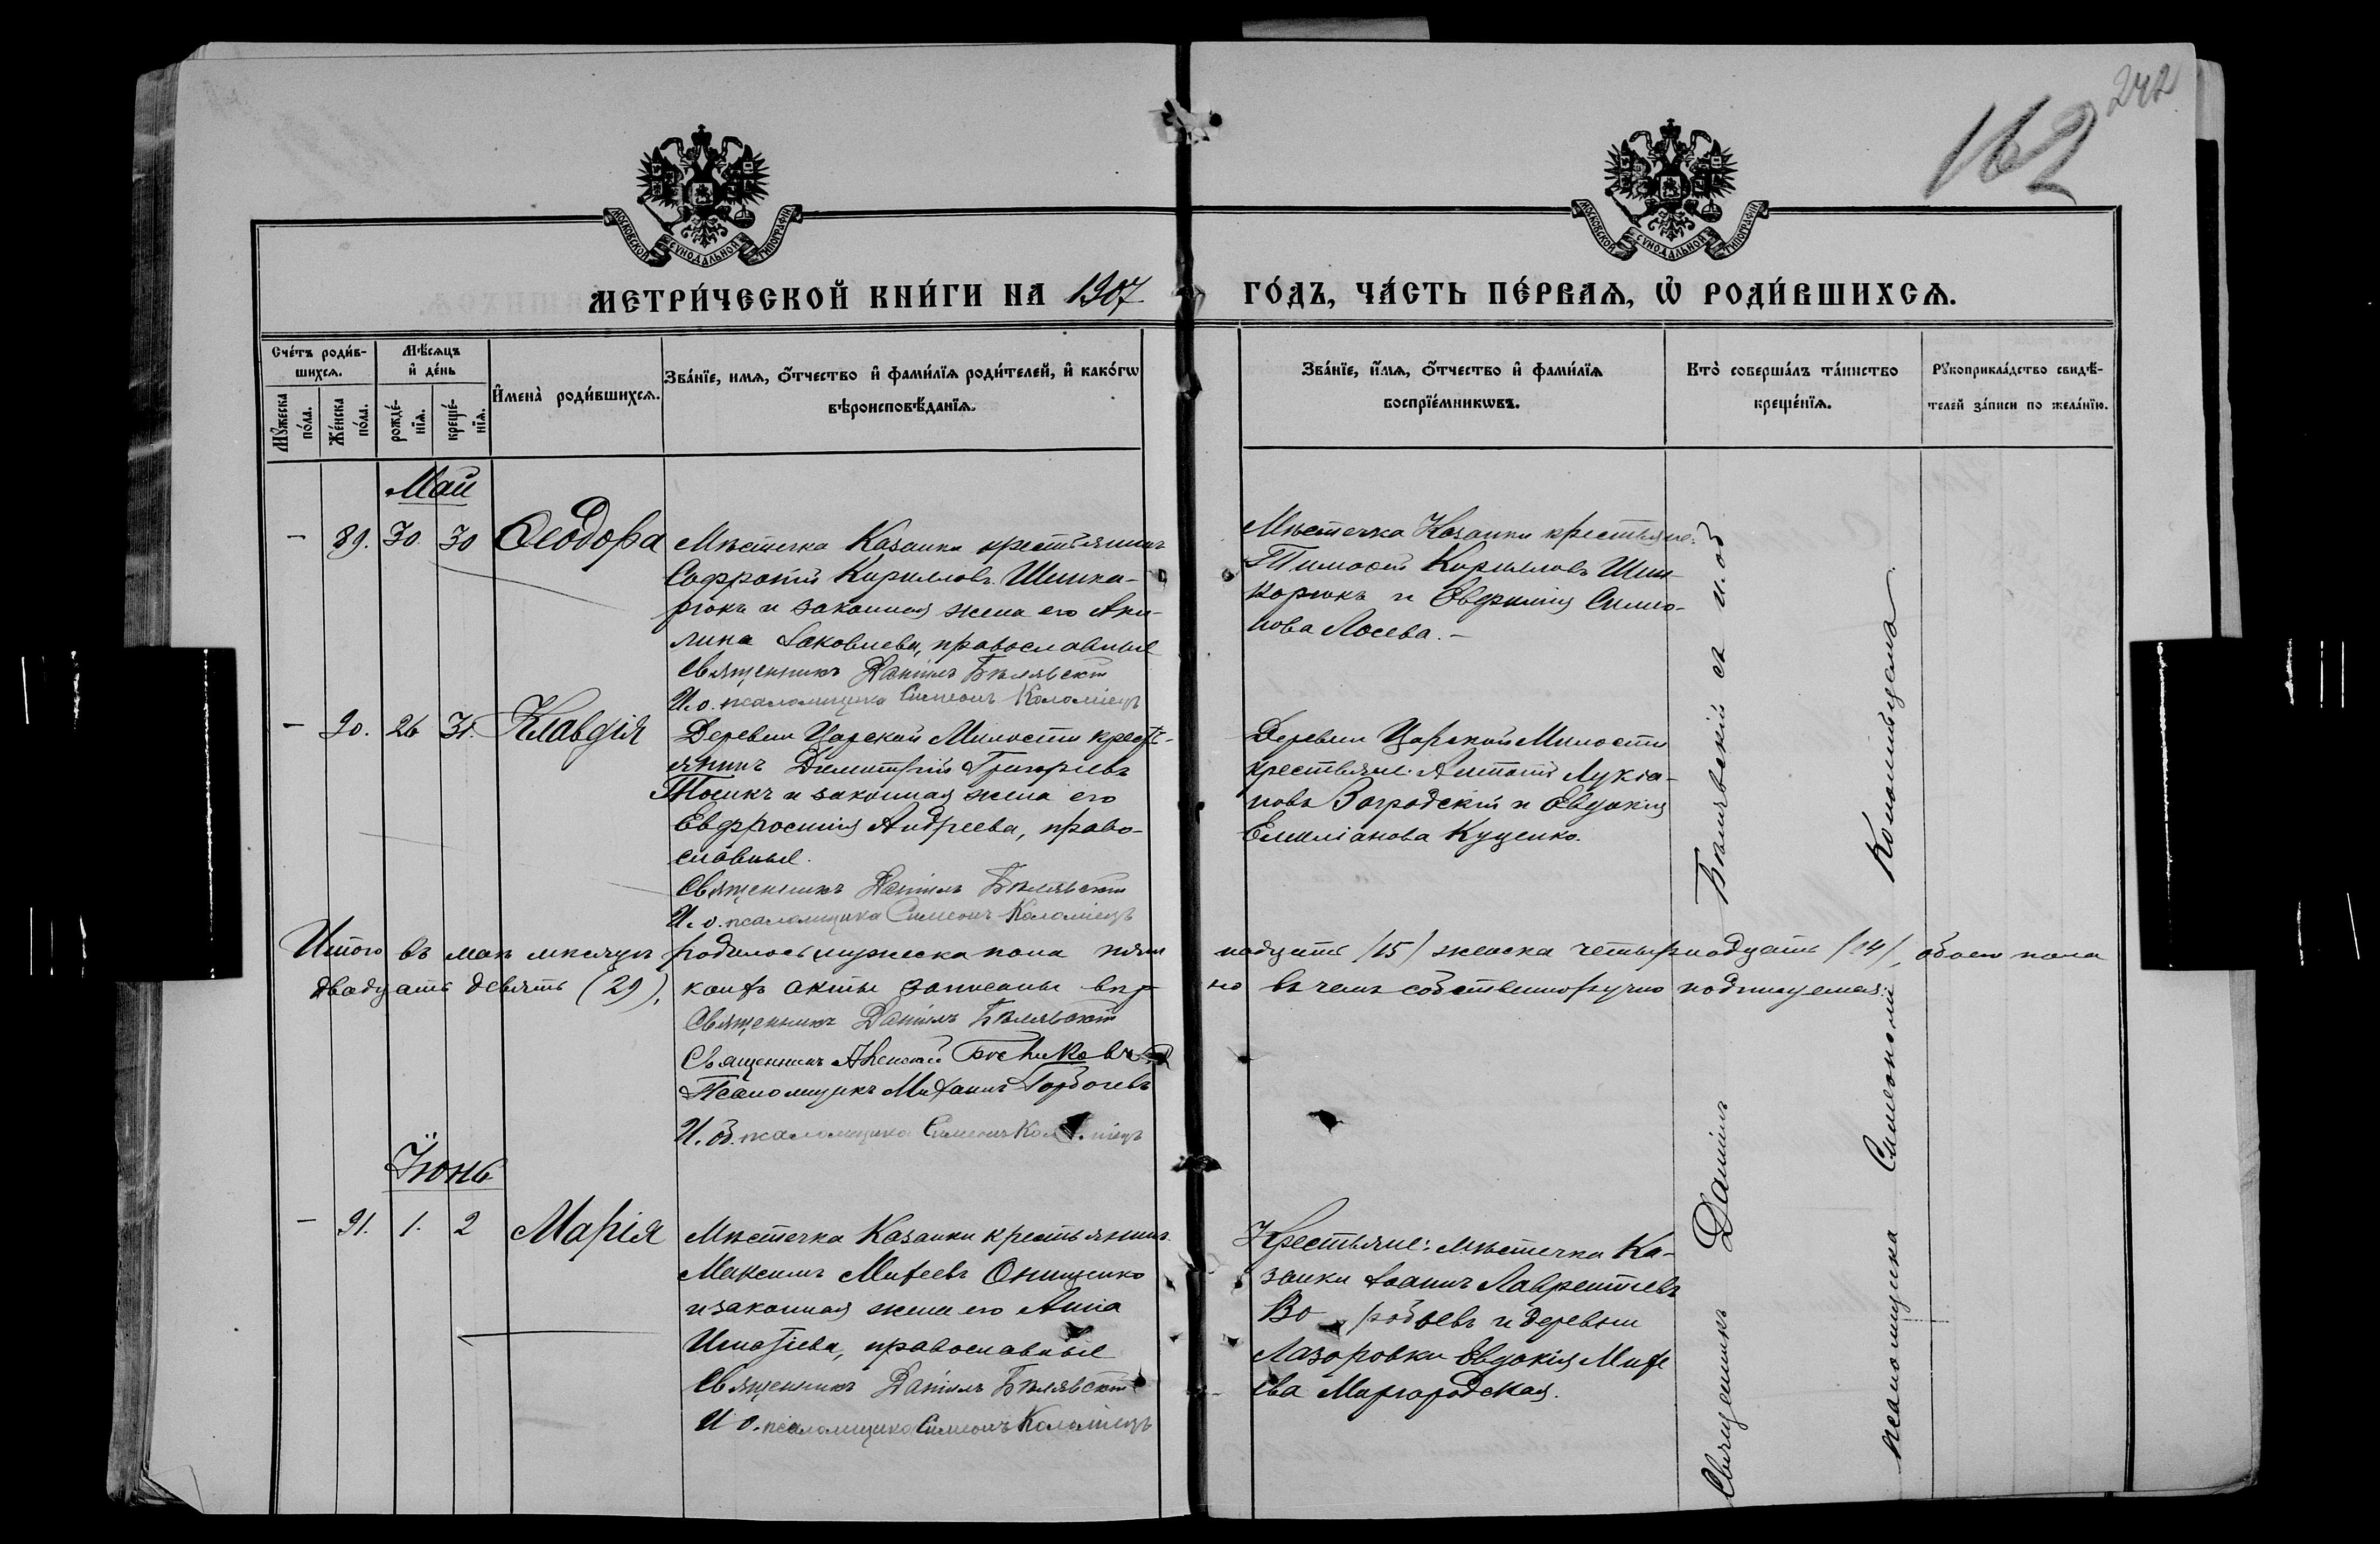 162
242
МОСКОВСКОЙ СѴНОДАЛЬНОЙ ТИПОГРАФІИ
МОСКОВСКОЙ СѴНОДАЛЬНОЙ ТИПОГРАФІИ
МЕТРИ́ЧЕСКОЙ КНИ́ГИ НА 1907 ГО́ДЪ, ЧА́СТЬ ПЕ́РВАѦ, Ѡ҆ РОДИ́ВШИХСѦ.
Сче́тъ роди́в-
шихсѧ.
Мѣ́сѧцъ
и҆ де́нь
Мꙋ́жеска
по́ла.
Же́нска
по́ла.
рожде́-
нїѧ.
креще́-
нїѧ.
И҆мена̀ роди́вшихсѧ.
Зва́нїе, имѧ, ѻ҆́тчество и҆ фами́лїѧ роди́телей, и҆ како́гѡ
вѣроисповѣ́данїѧ.
Зва́нїе, и҆́мѧ, ѻ҆́тчество и҆ фами́лїѧ
воспрїе́мникѡвъ.
Кто̀ соверша́лъ та́инство
креще́нїѧ.
Рꙋкоприкла́дство свидѣ́-
телей за́писи по жела́нїю.
Май
– 89. 30 30 Ѳеодора
Мѣстечка Казанки крестьянинъ
Софроній Кирилловъ Шинка-
рюкъ и законная жена его Аки-
лина Іаковлева, православные
Священникъ Даніилъ Бѣлявскій
И. о. псаломщика Симеонъ Коломіецъ
Мѣстечка Казанки крестьяне:
Тимоѳей Кирилловъ Шин-
карюкъ и Евфимія Симо-
нова Лосева. –
– 90. 26 31. Клавдія
Деревни Царской Милости кресть-
янинъ Димитрій Григорьевъ
Тосикъ и законная жена его
Евфросинія Андреева, право-
славные.
Священникъ Даніилъ Бѣлявскій
И. о. псаломщика Симеонъ Коломіецъ
Деревни Царской Милости
крестьяне: Антоній Лукіа-
новъ Заградскій и Евдокія
Емиліанова Куценко.
Итого въ маѣ мѣсяцѣ родилось мужеска пола пят надцать (15) женска четырнадцать (14), обоего пола
двадцать девять (29), коихъ акты записаны вѣр но въ чемъ собственноручно подписуемся:
Священникъ Даніилъ Бѣлявскій
Священникъ Алексій
Псаломщикъ Михаилъ Горбачевъ
И. об. псаломщика Симеонъ Коломіецъ
Іюнь
– 91. 1. 2 Марія
Мѣстечка Казанки крестьянинъ
Максимъ Михеевъ Онищенко
и законная жена его Анна
Игнатіева, православные
Священникъ Даніилъ Бѣлявскій
И о. псаломщика Симеонъ Коломіецъ
Крестьяне: мѣстечка Ка-
занки Іоаннъ Лаврентіевъ
Во робьевъ и деревни
Лазаровки Евдокія Михе
ева Миргородская.
Священникъ Даніилъ Бѣлявскій съ и. об
псаломщика Симеономъ Коломійцемъ